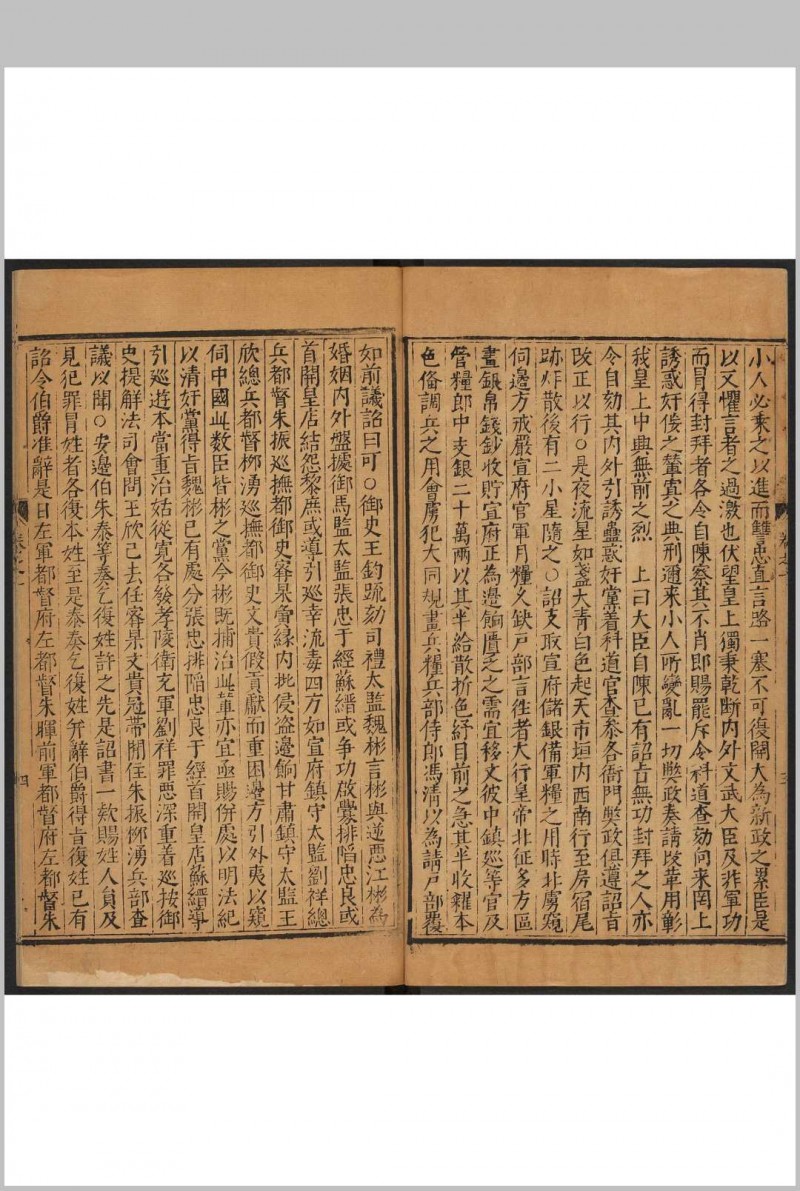 小人必乘之以進而讐忠直言路一塞不可復開大為新政之累臣是
以又懼言者之過激也伏望皇上獨秉乾断内外文武大臣及非軍功
而冐得封拜者各令自陳察其不肖即賜罷斥令科道查劾向来罔上
誘惑奸佞之輩寘之典刑邇来小人所變亂一切獘政奏請改革用彰
我皇上中興無前之烈 上曰大臣自陳已有詔旨無功封拜之人亦
令自劾其内外引誘蠱惑奸黨着科道官查叅各衙門獘政俱遵詔旨
改正以行○是夜流星如盞大青白色起天市垣内西南行至房宿尾
跡炸散後有二小星隨之○詔支取宣府儲銀備軍糧之用時北虜窺
伺邊方戒嚴宣府官軍月糧久缺戸部言徃者大行皇帝北征多方區
畫銀帛錢鈔收貯宣府正為邊餉匱乏之需宜移文彼中鎮巡等官及
管糧郎中支銀二十萬兩以其半給散折色紓目前之急其半收糴本
色俻調兵之用會虜犯大同規畫兵糧兵部侍郎馮清以為請戸部覆
如前議詔曰可○御史王鈞疏劾司禮太監魏彬言彬與逆惡江彬為
婚姻内外盤據御馬監太監張忠于經蘇縉或争功啟釁排陷忠良或
首開皇店結怨黎庶或導引巡幸流毒四方如宣府鎮守太監劉祥總
兵都督朱振巡撫都御史寗杲夤緣内批侵盗邊餉甘肅鎮守太監王
欣總兵都督栁湧巡撫都御史文貴假貢獻而重困邊方引外夷以窺
伺中國此数臣皆彬之黨今彬既捕治此輩亦宜亟賜併處以明法紀
以清奸黨得旨魏彬已有處分張忠排陷忠良于經首開皇店蘇縉導
引巡遊本當重治姑従寛各發孝陵衛充軍劉祥罪惡深重着巡按御
史提解法司會問王欣已去任寗杲文貴冠帶閒住朱振栁湧兵部查
議以聞○安邊伯朱泰等奏乞復姓許之先是詔書一欵賜姓人員及
見犯罪冐姓者各復本姓至是泰奏乞復姓并辭伯爵得旨復姓已有
詔令伯爵准辭是日左軍都督府左都督朱暉前軍都督府左都督朱
卷之一
三
四